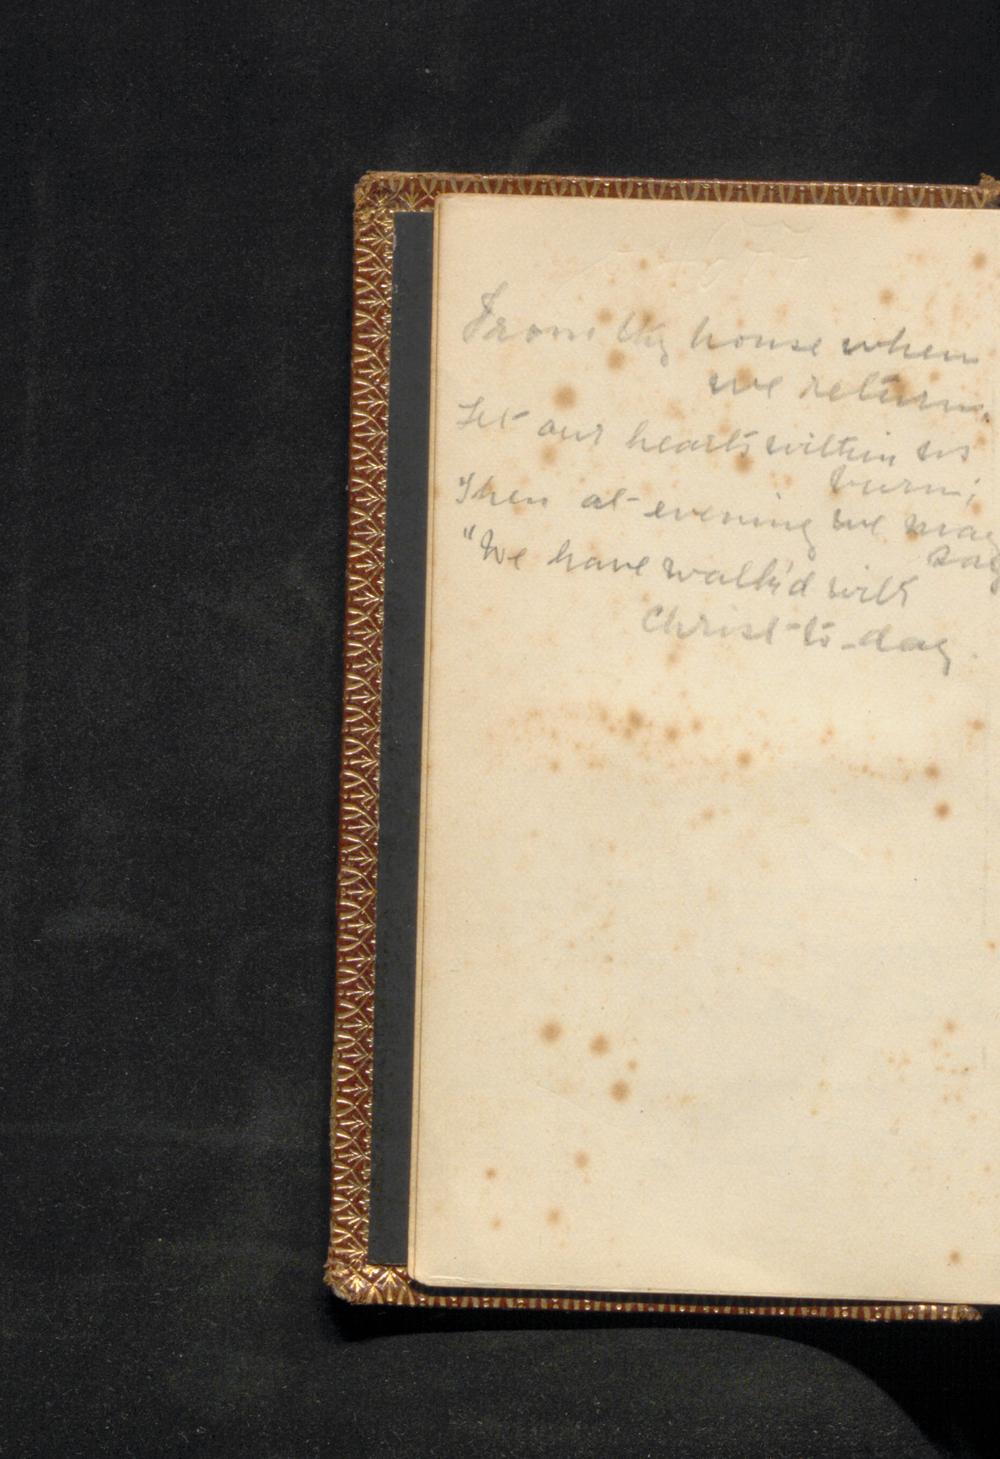 From thy house when
we return,
Let our hearts within us
burn;
Then at evening we may
say
"We have walk'd with
Christ to-day.